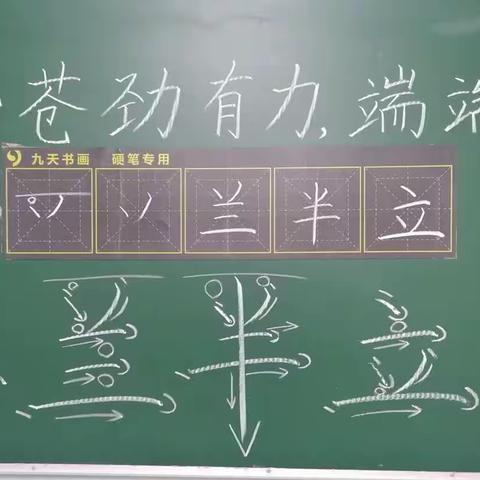 苍劲有力,端端
九天书画 硬笔专用
丷 丷 兰 半 立
兰 半 立